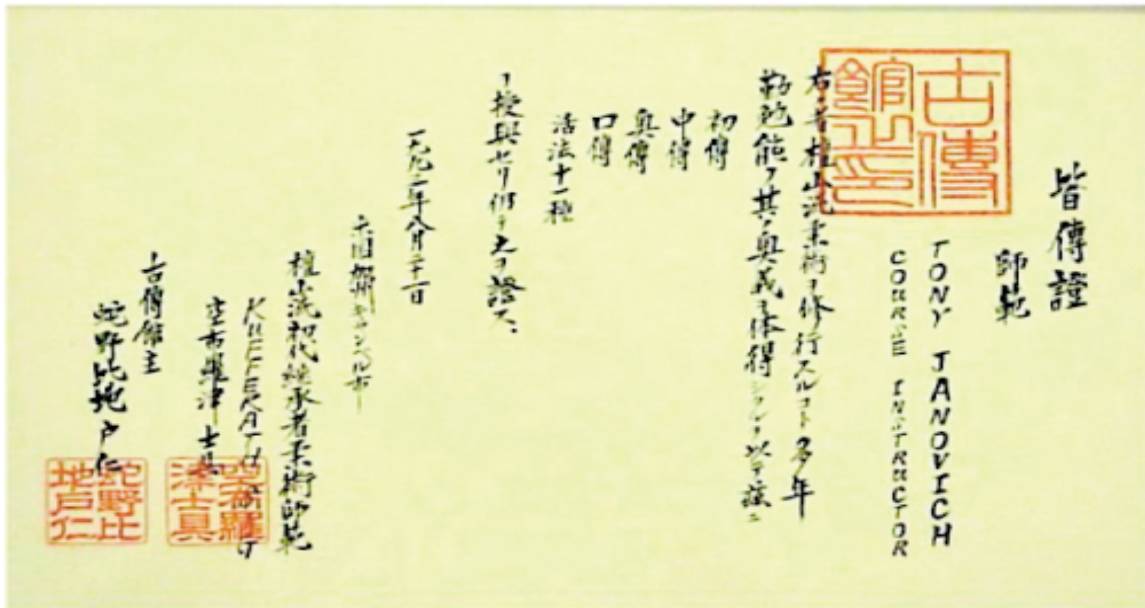 皆傳證
師範
TONY JANOVICH
COURSE INSTRUCTOR
古傳館之印
右ノ者檀山流柔術ヲ修行スルコト多年
勤勉能ク其ノ奥義ヲ体得シタルヲ以テ茲ニ
初傳
中傳
奥傳
口傳
活法十一種
ヲ授與セリ仍テ之ヲ證ス、
一九九二年八月
米国加州キャンベル市
檀山流初代継承者柔術師範
KUFFERATH
津士真
古傳館主
蛇野比地戸仁
羅津士真
蛇野比地戸仁